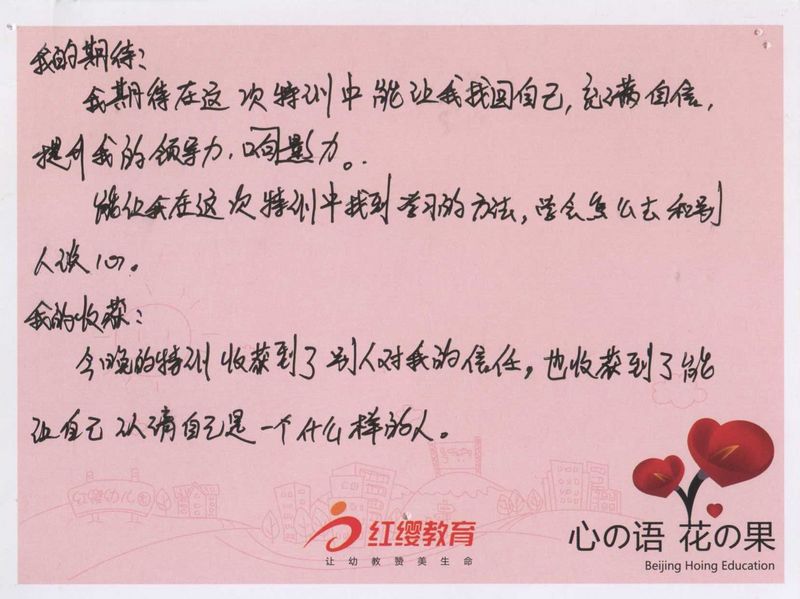 我的期待：
我期待在这次特训中能让我找回自己，充满自信，
提升我的领导力，响影力。
能让我在这次特训中找到学习的方法，学会怎么去和别
人谈心。
我的收获：
今晚的特训收获到了别人对我的信任，也收获到了能
让自己认清自己是一个什么样的人。
红缨教育
让幼教赞美生命
心の语 花の果
Beijing Hoing Education